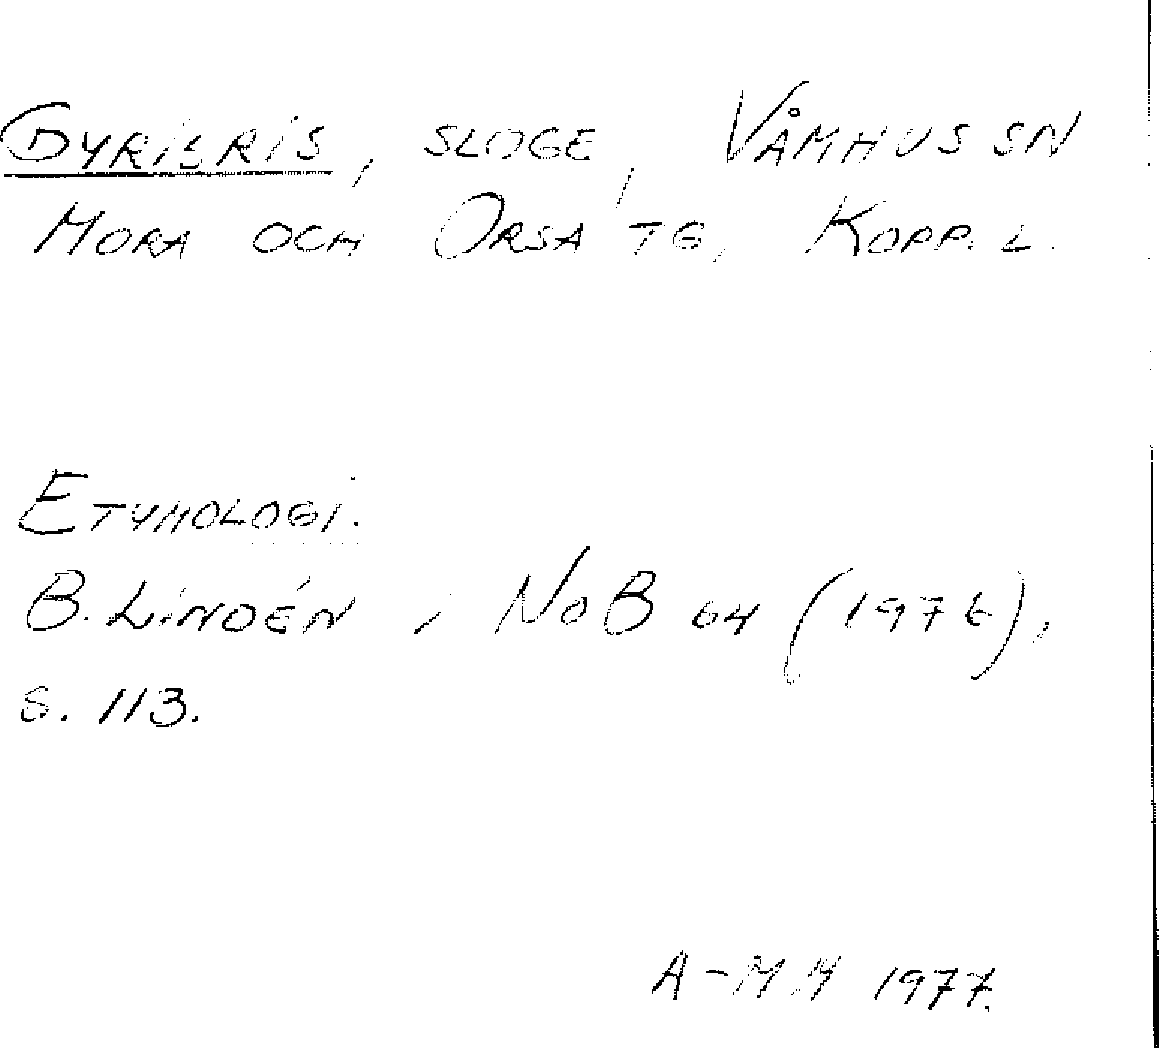 DYRILRIS, SLOGE, VÅMHUS SN
MORA OCH ORSA TG, KOPP. L.
ETYMOLOGI.
B. LINDÉN, NOB 64 (1976),
S. 113.
A-M.M 1977.